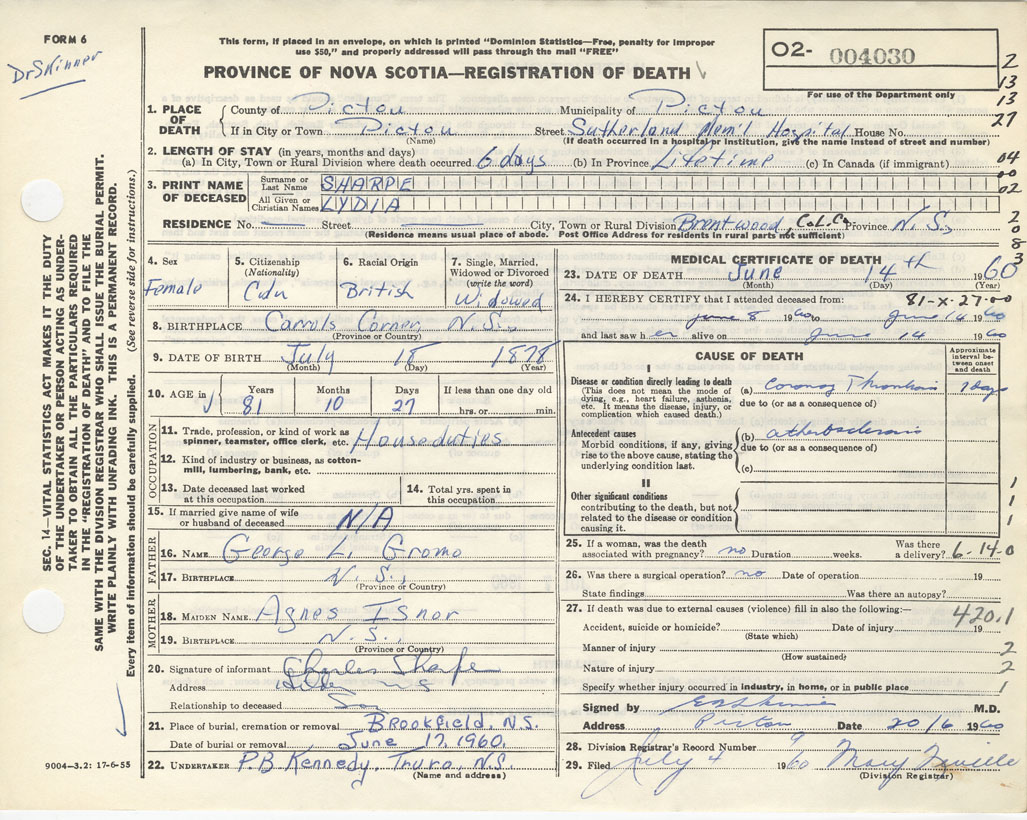 FORM 6
Dr Skinner
This form, if placed in an envelope, on which is printed "Dominion Statistics—Free, penalty for improper
use $50," and properly addressed will pass through the mail "FREE"
PROVINCE OF NOVA SCOTIA—REGISTRATION OF DEATH
O2- 004030
For use of the Department only
2
13
13
27
04
00
02
2
0
8
3
SEC. 14—VITAL STATISTICS ACT MAKES IT THE DUTY
OF THE UNDERTAKER OR PERSON ACTING AS UNDER-
TAKER TO OBTAIN ALL THE PARTICULARS REQUIRED
IN THE "REGISTRATION OF DEATH" AND TO FILE THE
SAME WITH THE DIVISION REGISTRAR WHO SHALL ISSUE THE BURIAL PERMIT.
WRITE PLAINLY WITH UNFADING INK. THIS IS A PERMANENT RECORD.
Every item of information should be carefully supplied. (See reverse side for instructions.)
1. PLACE OF DEATH County of Pictou Municipality of Pictou
If in City or Town Pictou Street Sutherland Mem'l Hospital House No.
(Name) (If death occurred in a hospital or institution, give the name instead of street and number)
2. LENGTH OF STAY (in years, months and days)
(a) In City, Town or Rural Division where death occurred 6 days (b) In Province Lifetime (c) In Canada (if immigrant)
3. PRINT NAME OF DECEASED Surname or Last Name SHARPE
All Given or Christian Names LYDIA
RESIDENCE No. Street City, Town or Rural Division Brentwood, Col. Co. Province N.S.,
(Residence means usual place of abode. Post Office Address for residents in rural parts not sufficient)
4. Sex
Female
5. Citizenship
(Nationality)
Cdn
6. Racial Origin
British
7. Single, Married,
Widowed or Divorced
(write the word)
Widowed
8. BIRTHPLACE Carrols Corner, N.S.,
(Province or Country)
9. DATE OF BIRTH July 18 1878
(Month) (Day) (Year)
10. AGE in Years Months Days If less than one day old
81 10 27 hrs. or min.
OCCUPATION
11. Trade, profession, or kind of work as
spinner, teamster, office clerk, etc. Houseduties
12. Kind of industry or business, as cotton-
mill, lumbering, bank, etc.
13. Date deceased last worked
at this occupation
14. Total yrs. spent in
this occupation
15. If married give name of wife
or husband of deceased N/A
FATHER
16. NAME George L. Grono
17. BIRTHPLACE N.S.,
(Province or Country)
MOTHER
18. MAIDEN NAME Agnes Isnor
19. BIRTHPLACE N.S.,
(Province or Country)
20. Signature of informant Charles Sharpe
Address N S
Relationship to deceased Son
21. Place of burial, cremation or removal Brookfield, N.S.
Date of burial or removal June 17, 1960.
22. UNDERTAKER P.B. Kennedy, Truro, N.S.
(Name and address)
9004—3.2: 17-6-55
MEDICAL CERTIFICATE OF DEATH
23. DATE OF DEATH June 14th 1960
(Month) (Day) (Year)
24. I HEREBY CERTIFY that I attended deceased from: 81-X-27-00
June 8 1960 to June 14 1960
and last saw her alive on June 14 1960
CAUSE OF DEATH
Approximate
interval be-
tween onset
and death
I
Disease or condition directly leading to death
(This does not mean the mode of
dying, e.g., heart failure, asthenia,
etc. It means the disease, injury, or
complication which caused death.)
(a) Coronary Thrombosis 7 days
due to (or as a consequence of)
Antecedent causes
Morbid conditions, if any, giving
rise to the above cause, stating the
underlying condition last.
(b) atherosclerosis
due to (or as a consequence of)
(c)
II
Other significant conditions
contributing to the death, but not
related to the disease or condition
causing it.
1
1
1
25. If a woman, was the death
associated with pregnancy? no Duration weeks. Was there
a delivery? 6-14-0
26. Was there a surgical operation? no Date of operation 19
State findings Was there an autopsy?
27. If death was due to external causes (violence) fill in also the following:—
420.1
Accident, suicide or homicide? Date of injury 19
(State which)
Manner of injury 2
(How sustained)
Nature of injury 2
Specify whether injury occurred in industry, in home, or in public place 1
Signed by E A Skinner M.D.
Address Pictou Date 20/6 1960
28. Division Registrar's Record Number 9
29. Filed July 4 1960 Mary
(Division Registrar)